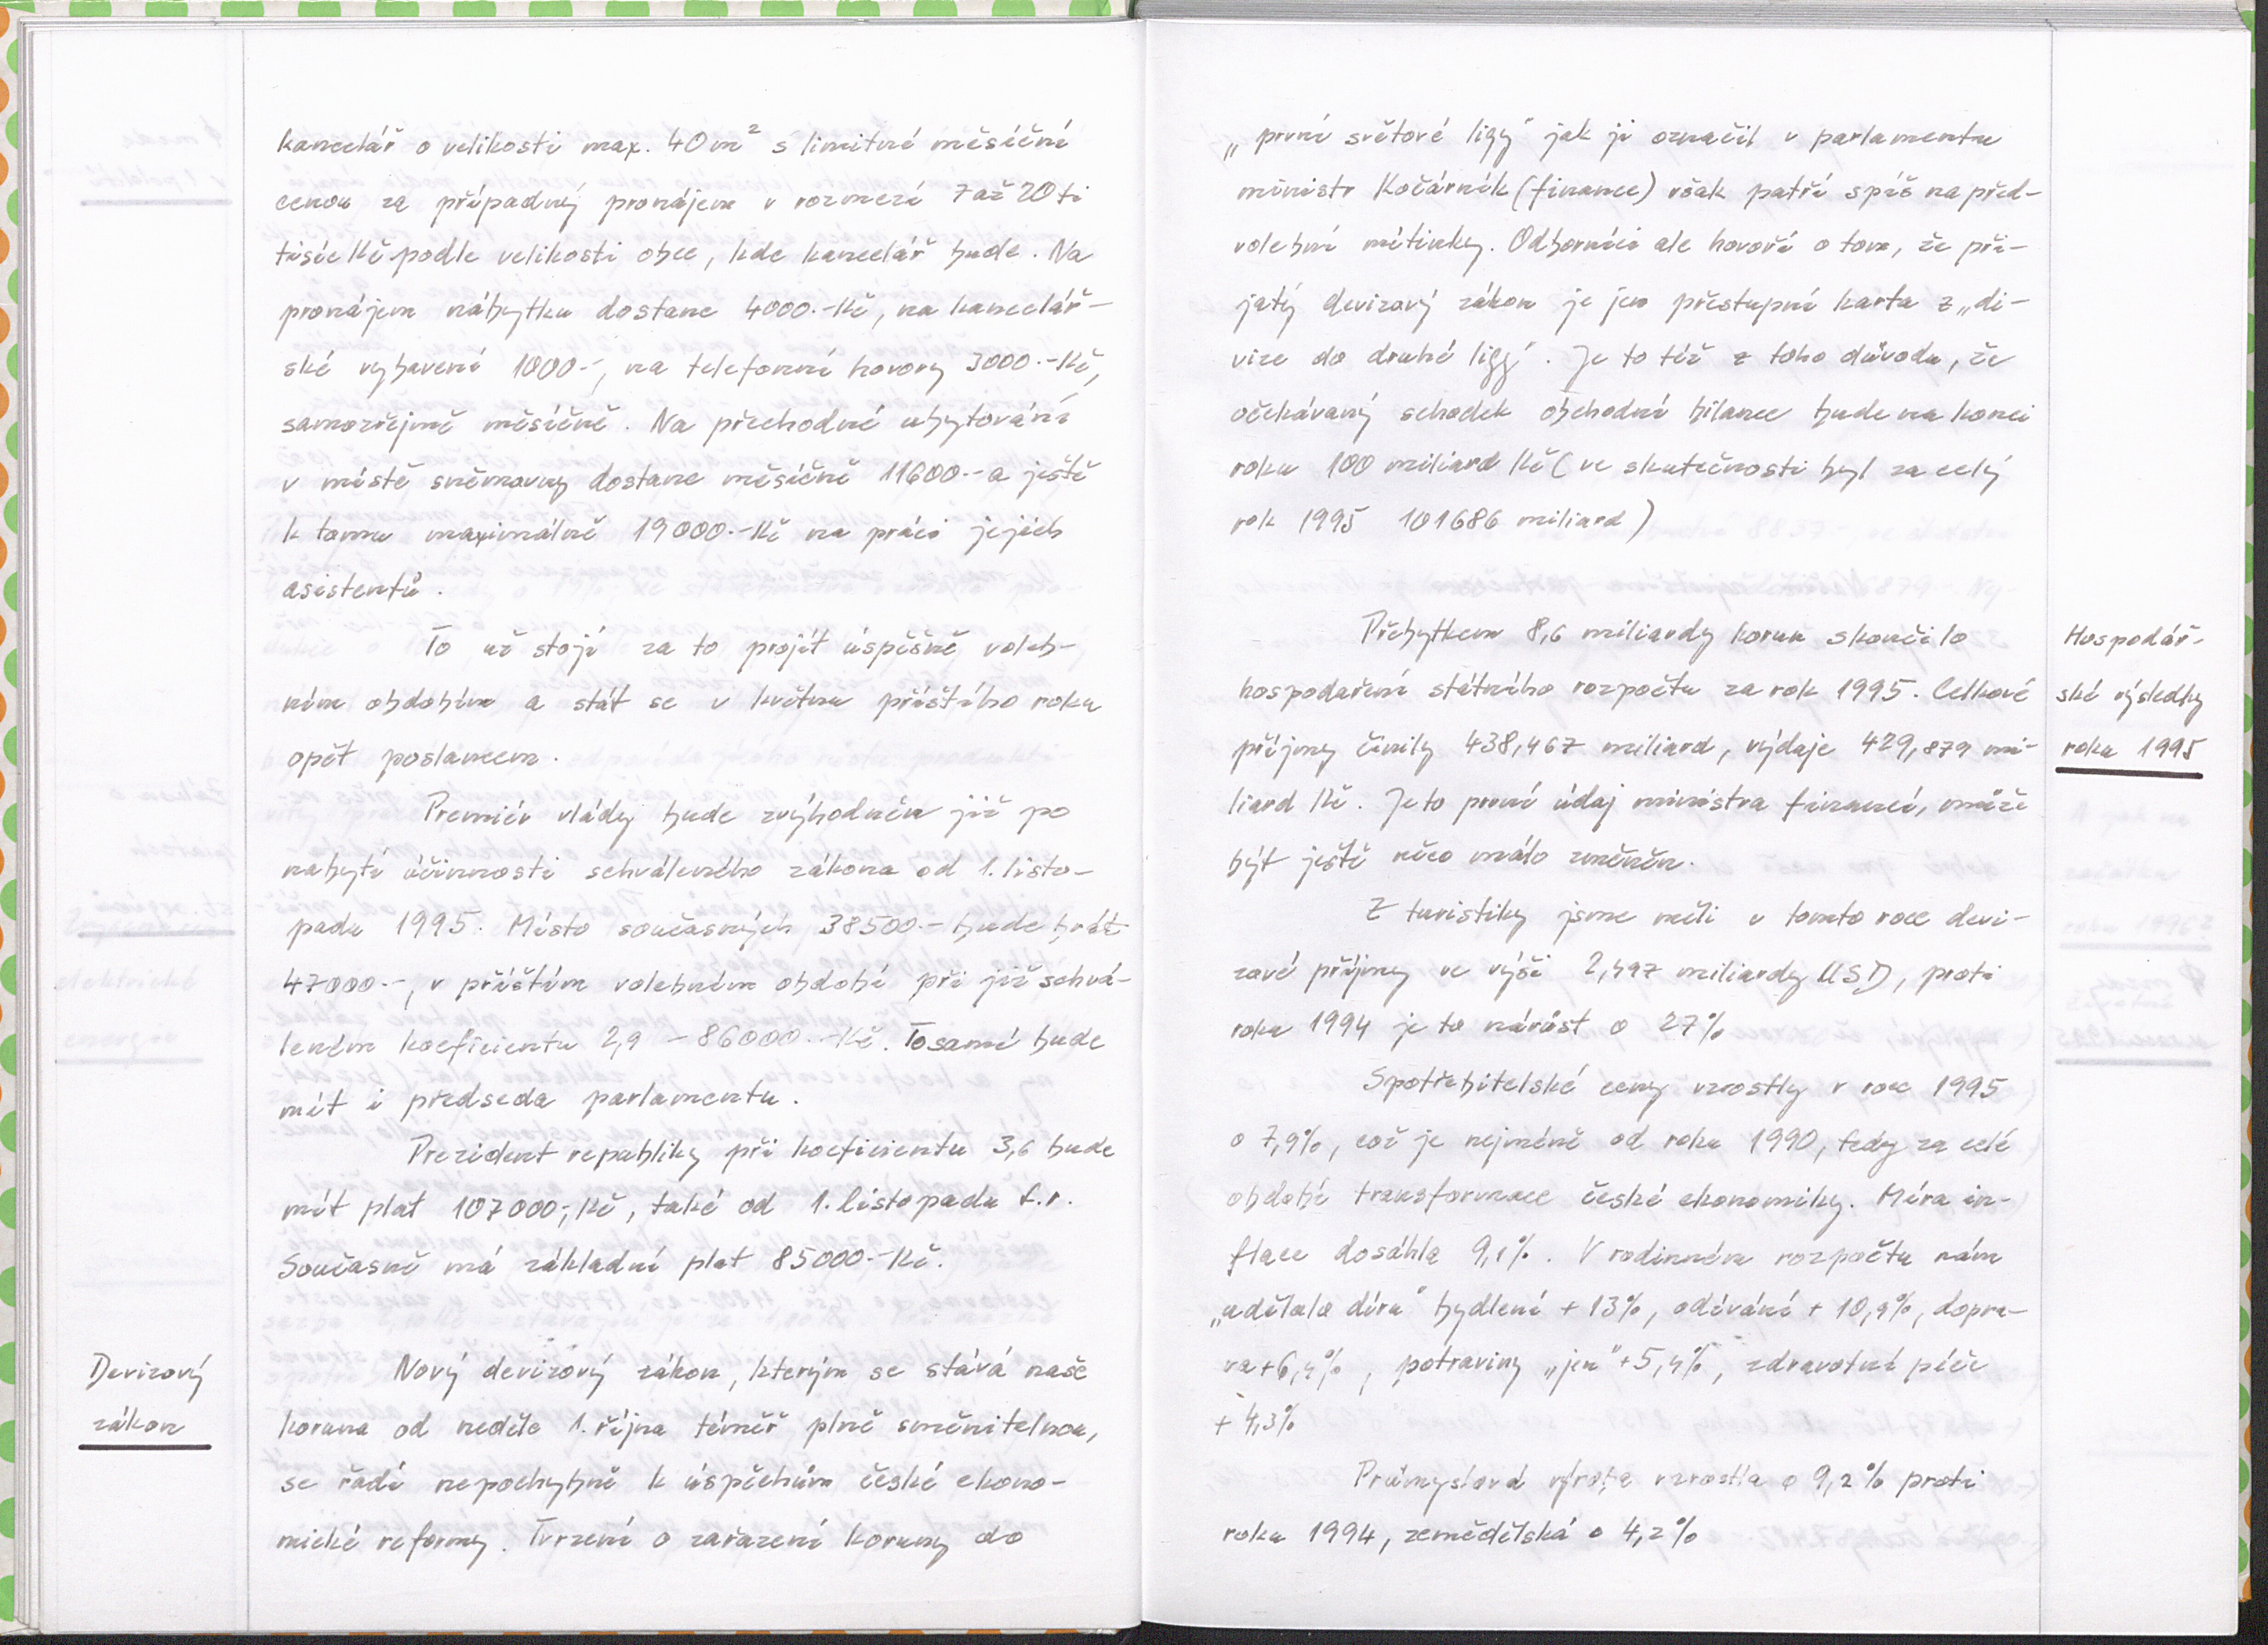 kancelář o velikosti max. 40 m² s limitní měsíční
cenou za případný pronájem v rozmezí 7 až 20ti
tisíc Kč podle velikosti obce, kde kancelář bude. Na
pronájem nábytku dostane 4000.-Kč, na kancelář-
ské vybavení 1000-, na telefonní hovory 3000.-Kč,
samozřejmě měsíčně. Na přechodné ubytování
v místě sněmovny dostane měsíčně 11600.- a ještě
k tomu maximálně 19000.-Kč na práci jejich
asistentů.
To už stojí za to projít úspěšně voleb-
ním obdobím a stát se v květnu příštího roku
opět poslancem.
Premiér vlády bude zvýhodněn již po
nabytí účinnosti schváleného zákona od 1. listo-
padu 1995. Místo současných 38500.- bude brát
47000.-, v příštím volebním období při již schvá-
leném koeficientu 2,9 - 86000.-Kč. Tosamé bude
mít i předseda parlamentu.
Prezident republiky při koeficientu 3,6 bude
mít plat 107000,-Kč, také od 1. listopadu t.r.
Současně má základní plat 85000.-Kč.
Devizový
zákon
Nový devizový zákon, kterým se stává naše
koruna od neděle 1. října téměř plně směnitelnou,
se řadí nepochybně k úspěchům české ekono-
mické reformy. Tvrzení o zařazení koruny do
„první světové ligy" jak ji označil v parlamentu
ministr Kočárník (finance) však patří spíš na před-
volební mítinky. Odborníci ale hovoří o tom, že při-
jatý devizový zákon je jen přestupní karta z „di-
vize do druhé ligy". Je to též z toho důvodu, že
očekávaný schodek obchodní bilance bude na konci
roku 100 miliard Kč (ve skutečnosti byl za celý
rok 1995 101686 miliard)
Hospodář-
ské výsledky
roku 1995
Přebytkem 8,6 miliardy korun skončilo
hospodaření státního rozpočtu za rok 1995. Celkové
příjmy činily 438,467 miliard, výdaje 429,879 mi-
liard Kč. Je to první údaj ministra financí, může
být ještě něco málo změněn.
Z turistiky jsme měli v tomto roce devi-
zové příjmy ve výši 2,497 miliardy USD, proti
roku 1994 je to nárůst o 27%
Spotřebitelské ceny vzrostly v roce 1995
o 7,9%, což je nejméně od roku 1990, tedy za celé
období transformace české ekonomiky. Míra in-
flace dosáhla 9,1%. V rodinném rozpočtu nám
„udělalo díru" bydlení + 13%, odívání + 10,9%, dopra-
va +6,4%, potraviny „jen" +5,4%, zdravotní péče
+ 4,3%
Průmyslová výroba vzrostla o 9,2% proti
roku 1994, zemědělská o 4,2%